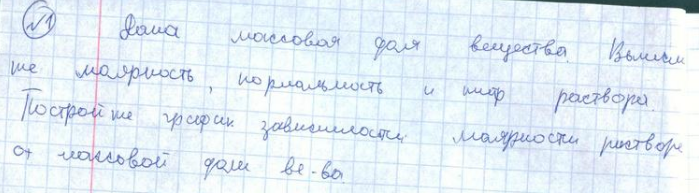 №1 Дана массовая доля вещества. Вычисли
те молярность, нормальность и титр раствора.
Постройте график зависимости молярности раствора
от массовой доли ве-ва